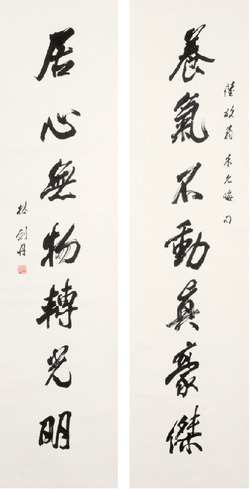 養氣不動真豪傑
陸放翁 朱元晦句
居心無物轉光明
林劍丹